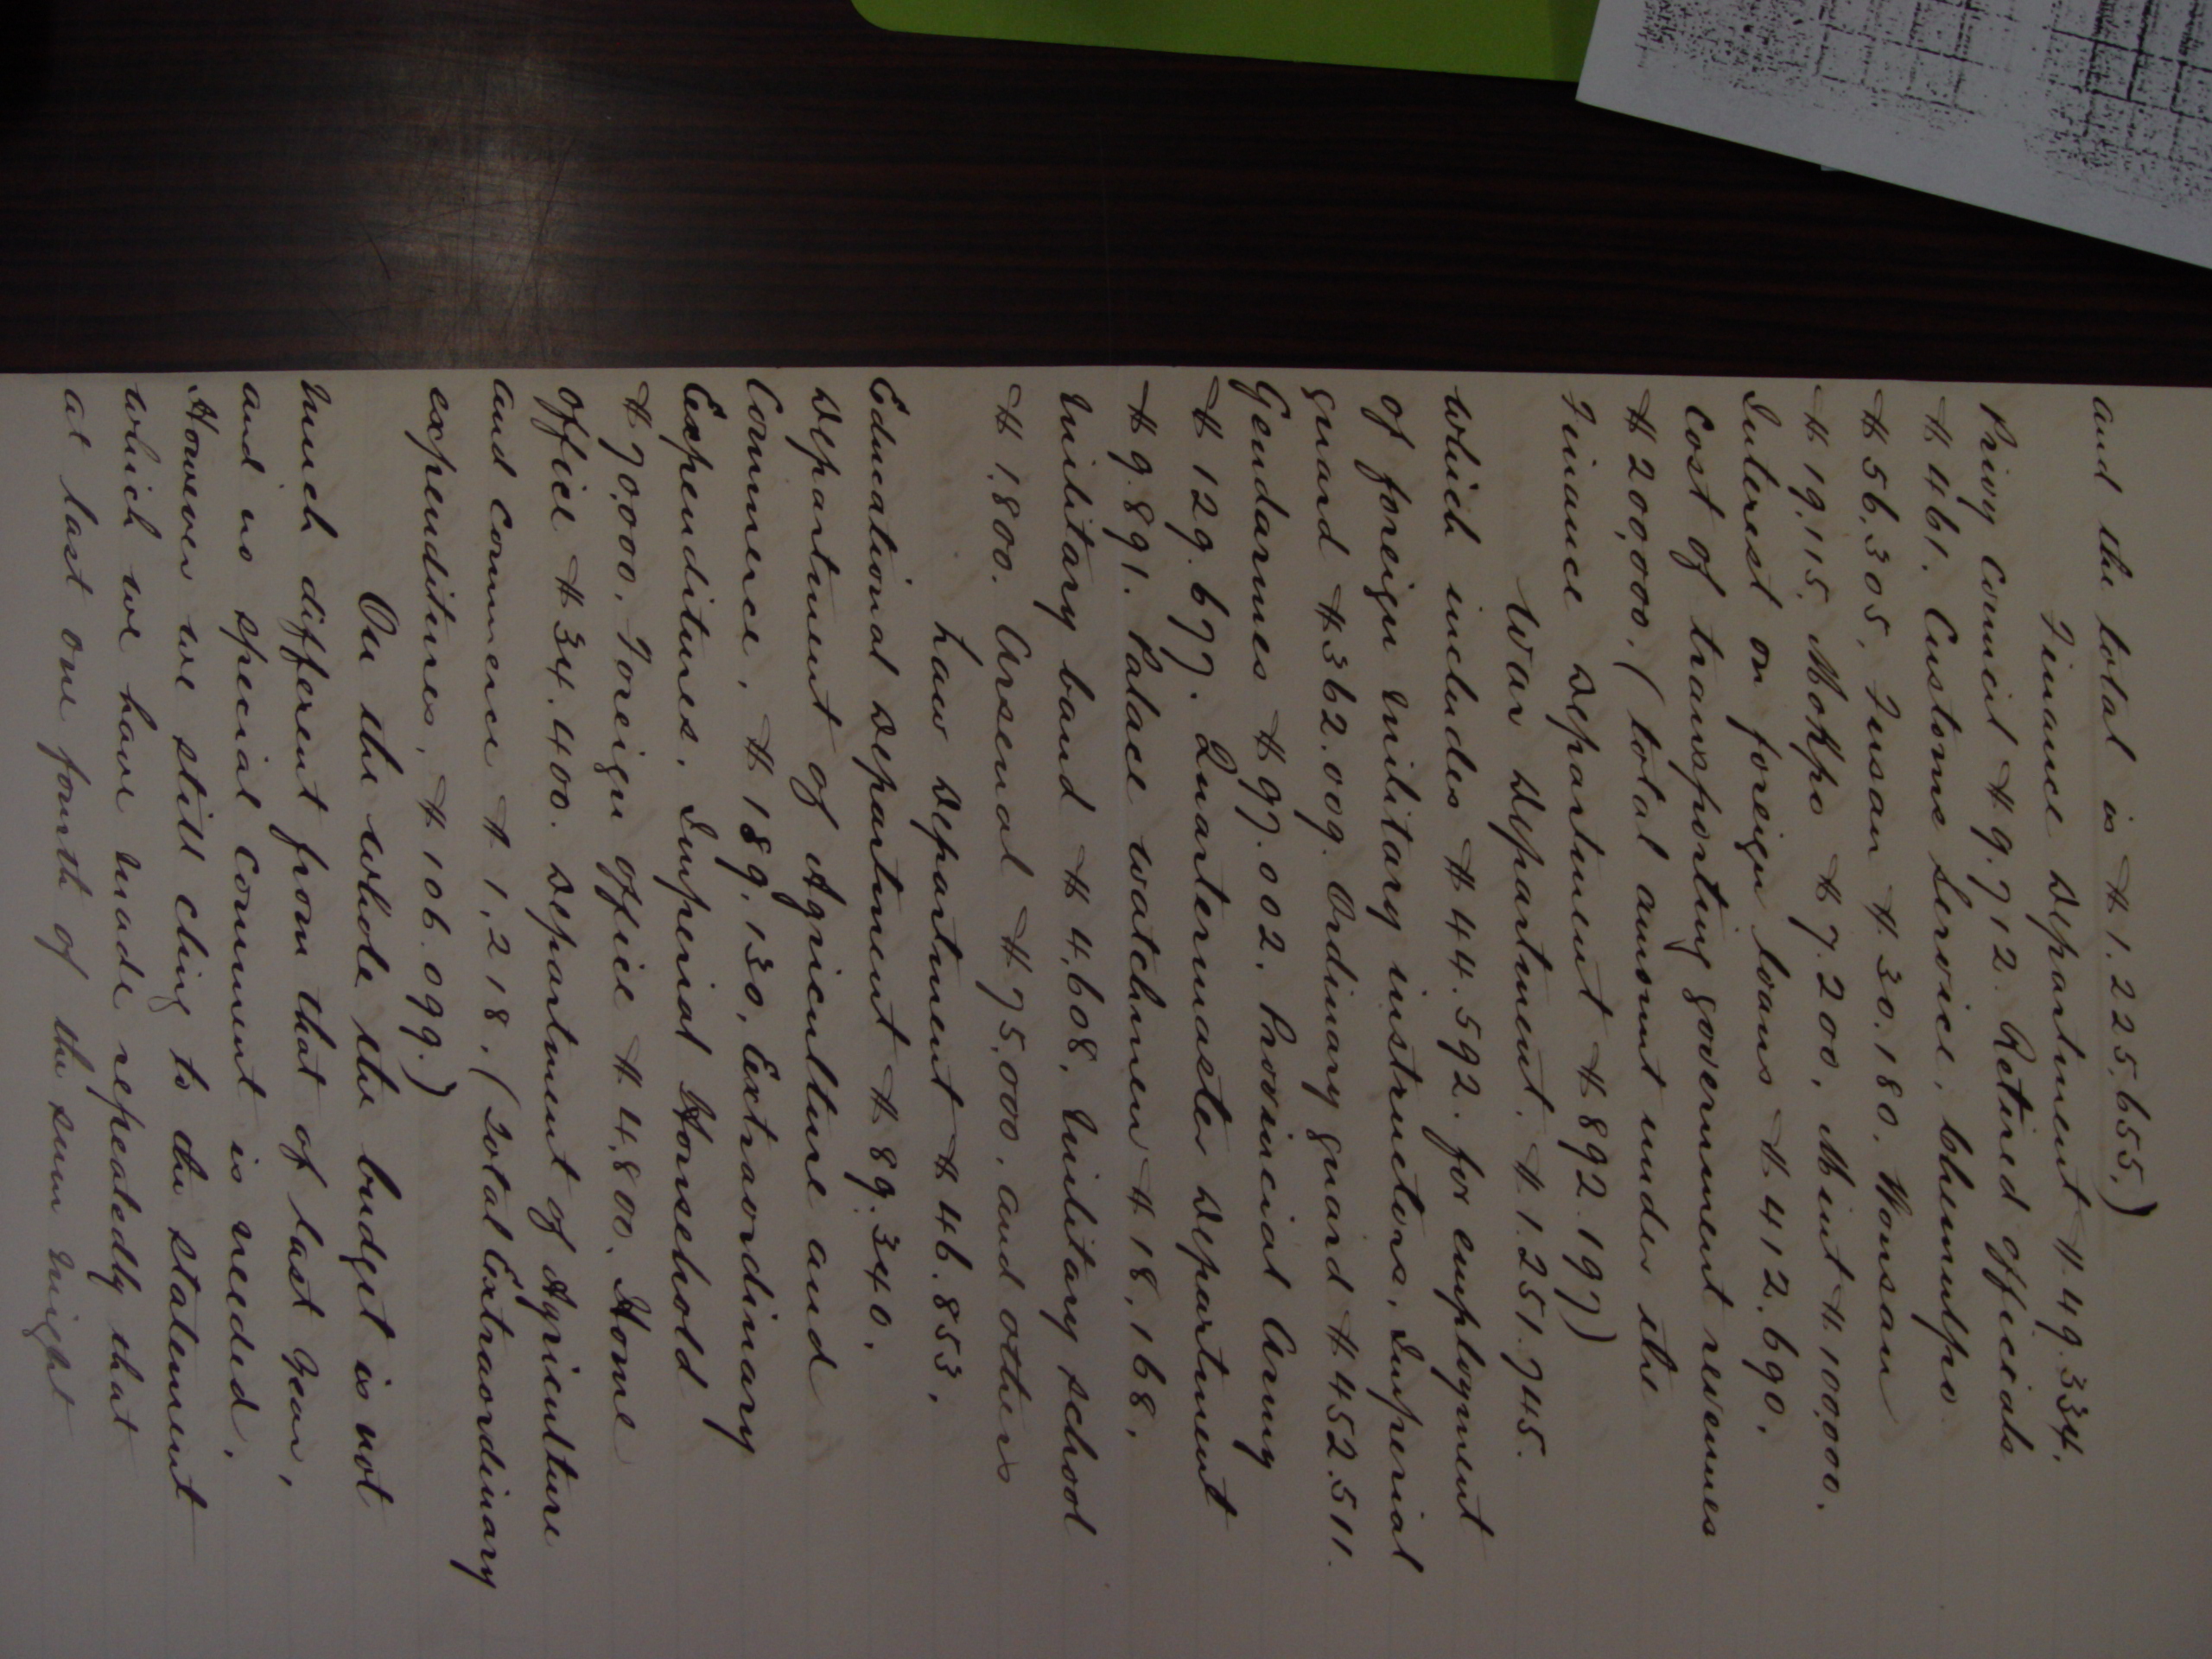 and the total is $1.225.655.)
Finance Department $.49.334.
Privy Council $9.712. Retired officials
$461. Customs Service, Chemulpo
$56.305. Fusan $.30.180. Wonsan
$19,115. Mokpo $7.200. Mint $.100,000.
Interest on foreign loans $.412.690.
Cost of transporting government revenues
$200,000. (total amount under the
Finance Department $892.197)
War Department. $.1.251.745.
which includes $44.592. for employment
of foreign military instructors, Imperial
guard $362.009. Ordinary guard $452.511.
Gendarmes $97.002. Provincial Army
$129.677. Quartermaster Department
$9.891. Palace watchmen $18,168.
Military band $4,608. Military school
$1,800. Arsenal $75,000. and others
Law Department $46.853.
Educational Department $89.340.
Department of Agriculture and
Commerce, $189,130. Extraordinary
Expenditures. Imperial Household
$70,000. Foreign office $4,800. Home
office $34.400. Department of Agriculture
and Commerce $1,218. (Total Extraordinary
expenditures, $106.099.)
On the whole the budget is not
much different from that of last year,
and no special comment is needed.
However we still cling to the statement
which we have made repeatedly that
at last one fourth of the sum might